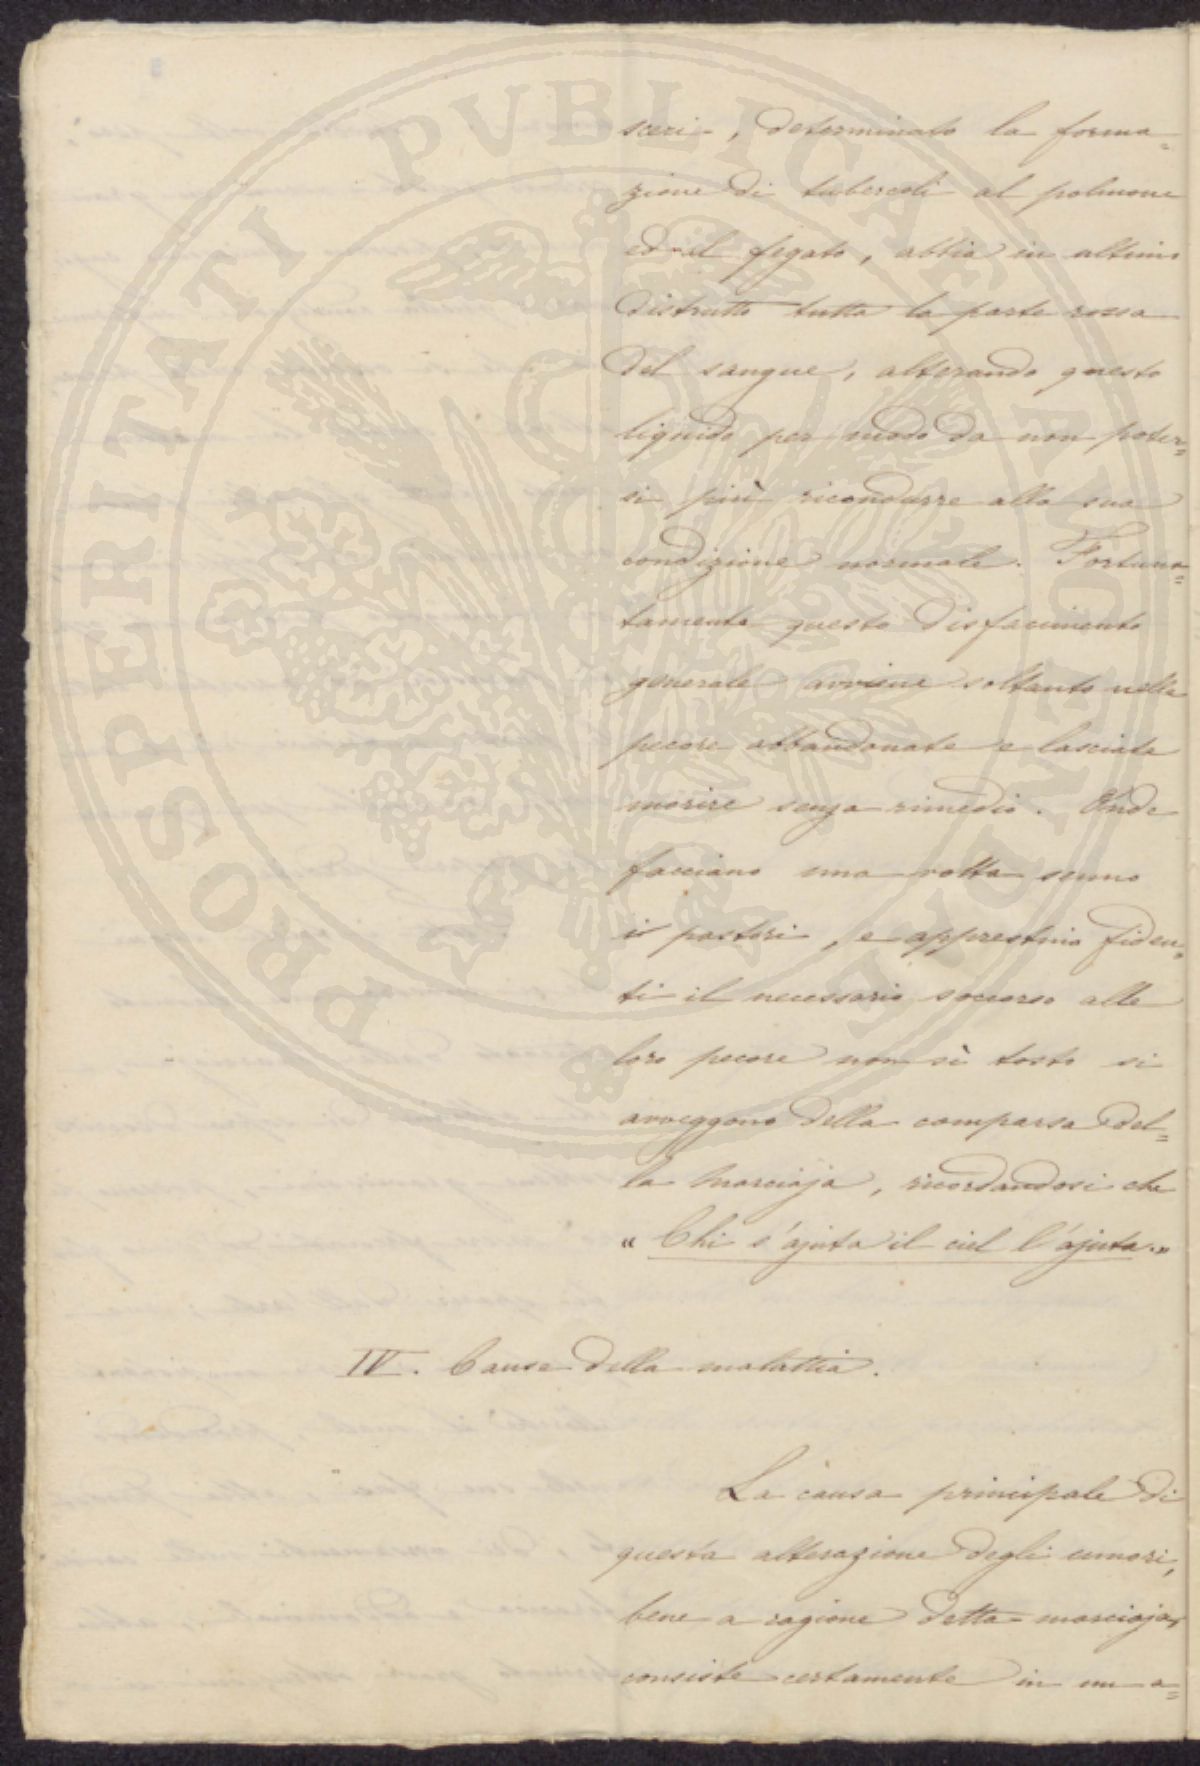 sceri, determinato la forma=
zione di tubercoli al polmone
ed al fegato, abbia in ultimo
distrutto tutta la parte rossa
del sangue, alterando questo
liquido per modo da non poter=
si più ricondurre alla sua
condizione normale. Fortuna=
tamente questo disfacimento
generale avviene soltanto nelle
pecore abbandonate e lasciate
morire senza rimedio. Onde
facciano una volta senno
i pastori, e apprestino fiden=
ti il necessario soccorso alle
loro pecore non sì tosto si
avveggono della comparsa del=
la marciaja, ricordandosi che
« Chi s'ajuta il ciel l'ajuta.»
IV. Cause della malattia.
La causa principale di
questa alterazione degli umori,
bene a ragione detta marciaja,
consiste certamente in un a=
PROSPERITATI PVBLICAE AVGENDAE